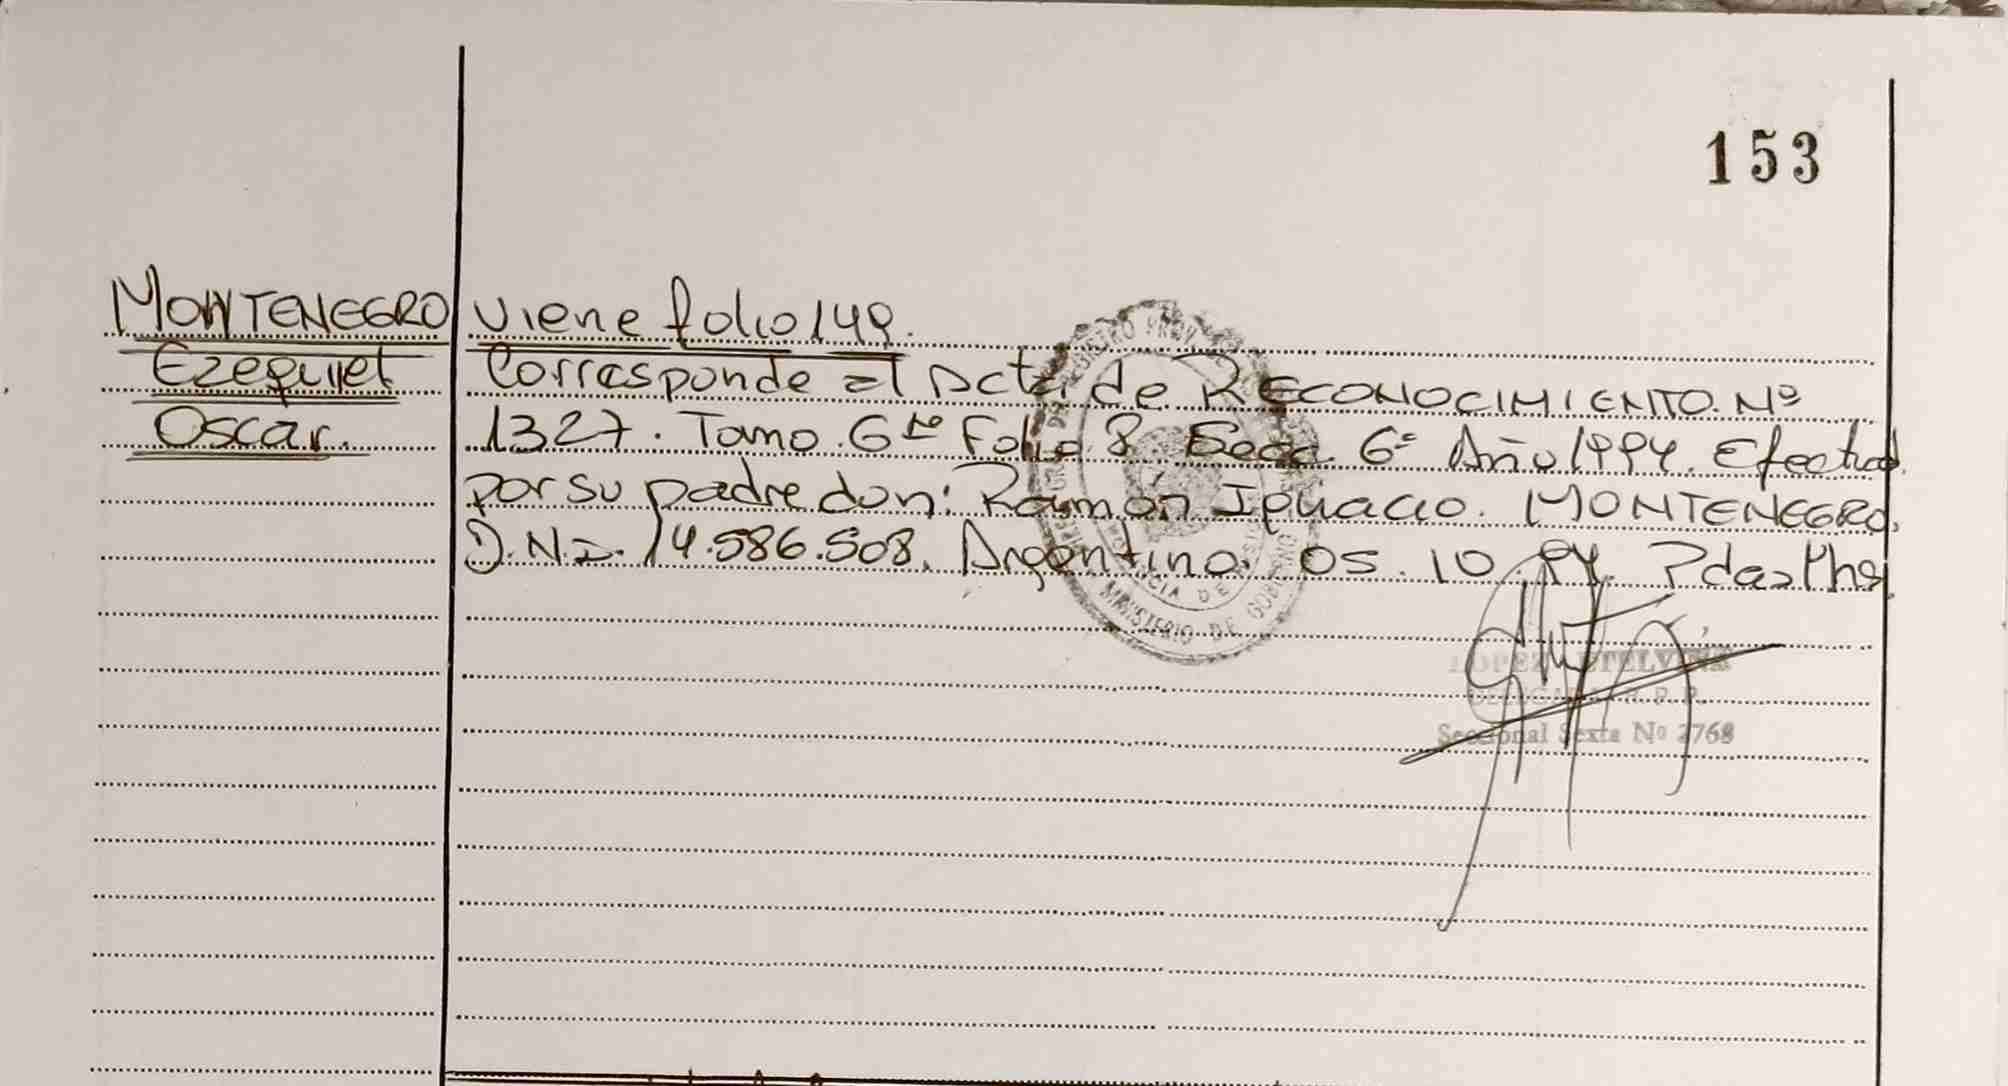 153
MONTENEGRO
Ezequiel
Oscar.
Viene folio 149.
Corresponde al Acta de RECONOCIMIENTO. Nº
1327. Tomo. 6to Folio 8 Secc. 6º Año 1994. Efectuad
por su padre don: Ramón Ignacio. MONTENEGRO.
D.N.I. 14.586.508. Argentino. 05. 10. 94. Pdas Mnes
MINISTERIO DE GOBIERNO
LOPEZ ETELVINA
DELEGADA R. P. P.
Seccional Sexta Nº 2768